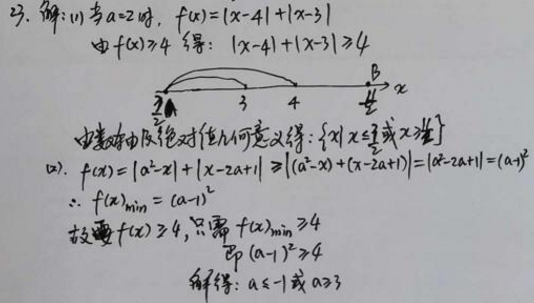 23. 解:(1)当a=2时, f(x)=|x-4|+|x-3|
由f(x)≥4 得: |x-4|+|x-3|≥4
3/2 A 3 4 B 11/2 x
由数轴及绝对值几何意义得:{x|x≤3/2或x≥11/2}
(2). f(x)=|a²-x|+|x-2a+1|≥|(a²-x)+(x-2a+1)|=|a²-2a+1|=(a-1)²
∴ f(x)min=(a-1)²
故要f(x)≥4,只需f(x)min≥4
即(a-1)²≥4
解得: a≤-1或a≥3